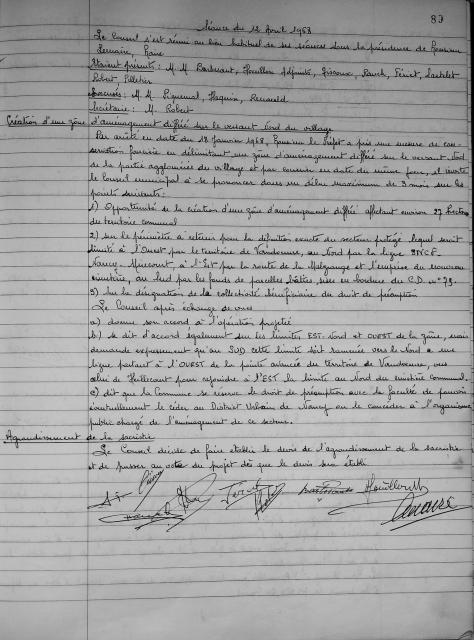 89
Séance du 12 Avril 1968
Le Conseil s'est réuni au lieu habituel de ses séances sous la présidence de Monsieur
Lemaire, Maire
Etaient présents : M M Barbesant, Houillon Adjoints, Grissoux, Rauch, Ferriet, Sachelet
Robert, Pelletier
Excusés : M. M. Piguemal, Hoquin, Renauld
Secrétaire : M. Robert
Création d'une zône d'aménagement différé sur le versant Nord du village
Par arrêté en date du 18 Janvier 1968, Monsieur le Préfet a pris une mesure de con-
servation foncière en délimitant une zône d'aménagement différé sur le versant Nord
de la partie agglomérée du village et par courrier en date du même jour, il invite
le Conseil municipal à se prononcer dans un délai maximum de 3 mois sur les
points suivants :
1) Opportunité de la création d'une zône d'aménagement différé affectant environ 27 hectares
du territoire communal
2) sur le périmètre à retenir pour la définition exacte du secteur protégé lequel serait
limité à l'Ouest par le territoire de Vandoeuvre, au Nord par la ligne SNCF
Nancy-Mirecourt, à l'Est par la route de la Malgrange et l'emprise du nouveau
cimetière, au Sud par les fonds de parcelles bâties, sises en bordure du C.D. n° 73.
3) Sur la désignation de la collectivité bénéficiaire du droit de préemption
Le Conseil après échange de vues
a) donne son accord à l'opération projetée
b) se dit d'accord également sur les limites EST-Nord et OUEST de la zône, mais
demande expressément qu'au SUD cette limite soit ramenée vers le Nord à une
ligne partant à l'OUEST de la pointe avancée du territoire de Vandoeuvre, vers
celui de Heillecourt pour rejoindre à l'EST la limite au Nord du cimetière communal.
c) dit que la Commune se réserve le droit de préemption avec la faculté de pouvoir
éventuellement le céder au District Urbain de Nancy ou le concéder à l'organisme
public chargé de l'aménagement de ce secteur.
Agrandissement de la sacristie
Le Conseil décide de faire établir le devis de l'agrandissement de la sacristie
et de passer au vote du projet dès que le devis sera établi.
Houillon